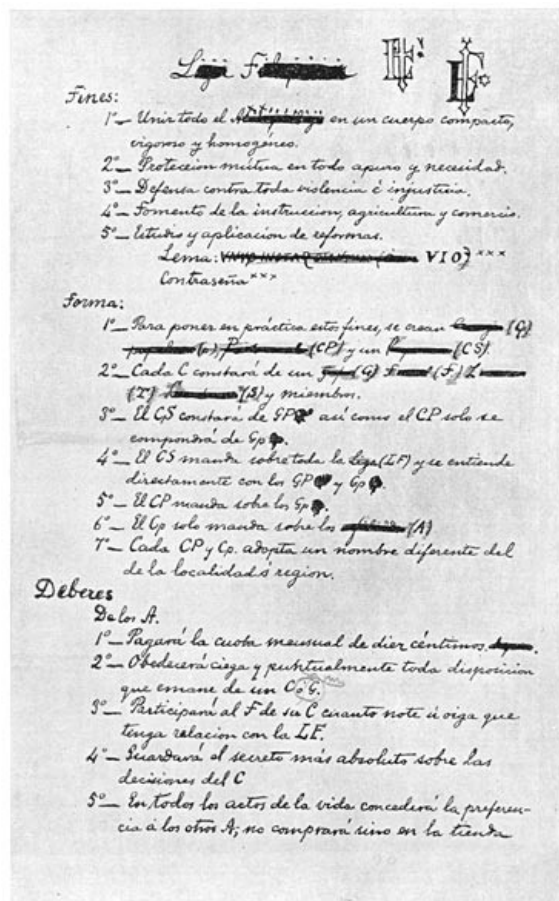 Liga
Fines:
1º— Unir todo el en un cuerpo compacto,
vigoroso y homogéneo.
2º— Proteccion mútua en todo apuro y necesidad.
3º— Defensa contra toda violencia é injusticia.
4º— Fomento de la instruccion, agricultura y comercio.
5º— Estudio y aplicacion de reformas.
Lema: VIO) ×××
Contraseña ×××
Forma:
1º— Para poner en práctica estos fines, se crean (C)
(p), (CP) y un (CS).
2º— Cada C constará de un (G) (F)
(T) (S) y miembros.
3º— El CS constará de GP así como el CP solo se
compondrá de Gp
4º— El CS manda sobre toda la Liga (LF) y se entiende
directamente con los GP y Gp
5º— El CP manda sobre los Gp
6º— El Cp solo manda sobre los (A)
7º— Cada CP y Cp. adopta un nombre diferente del
de la localidad ó region.
Deberes
De los A.
1º— Pagará la cuota mensual de diez céntimos.
2º— Obedecerá ciega y puntualmente toda disposicion
que emane de un C ó G.
3º— Participará al F de su C cuanto note ú oiga que
tenga relacion con la LF.
4º— Guardará el secreto más absoluto sobre las
decisiones del C
5º— En todos los actos de la vida concederá la preferen-
cia á los otros A; no comprará sino en la tienda